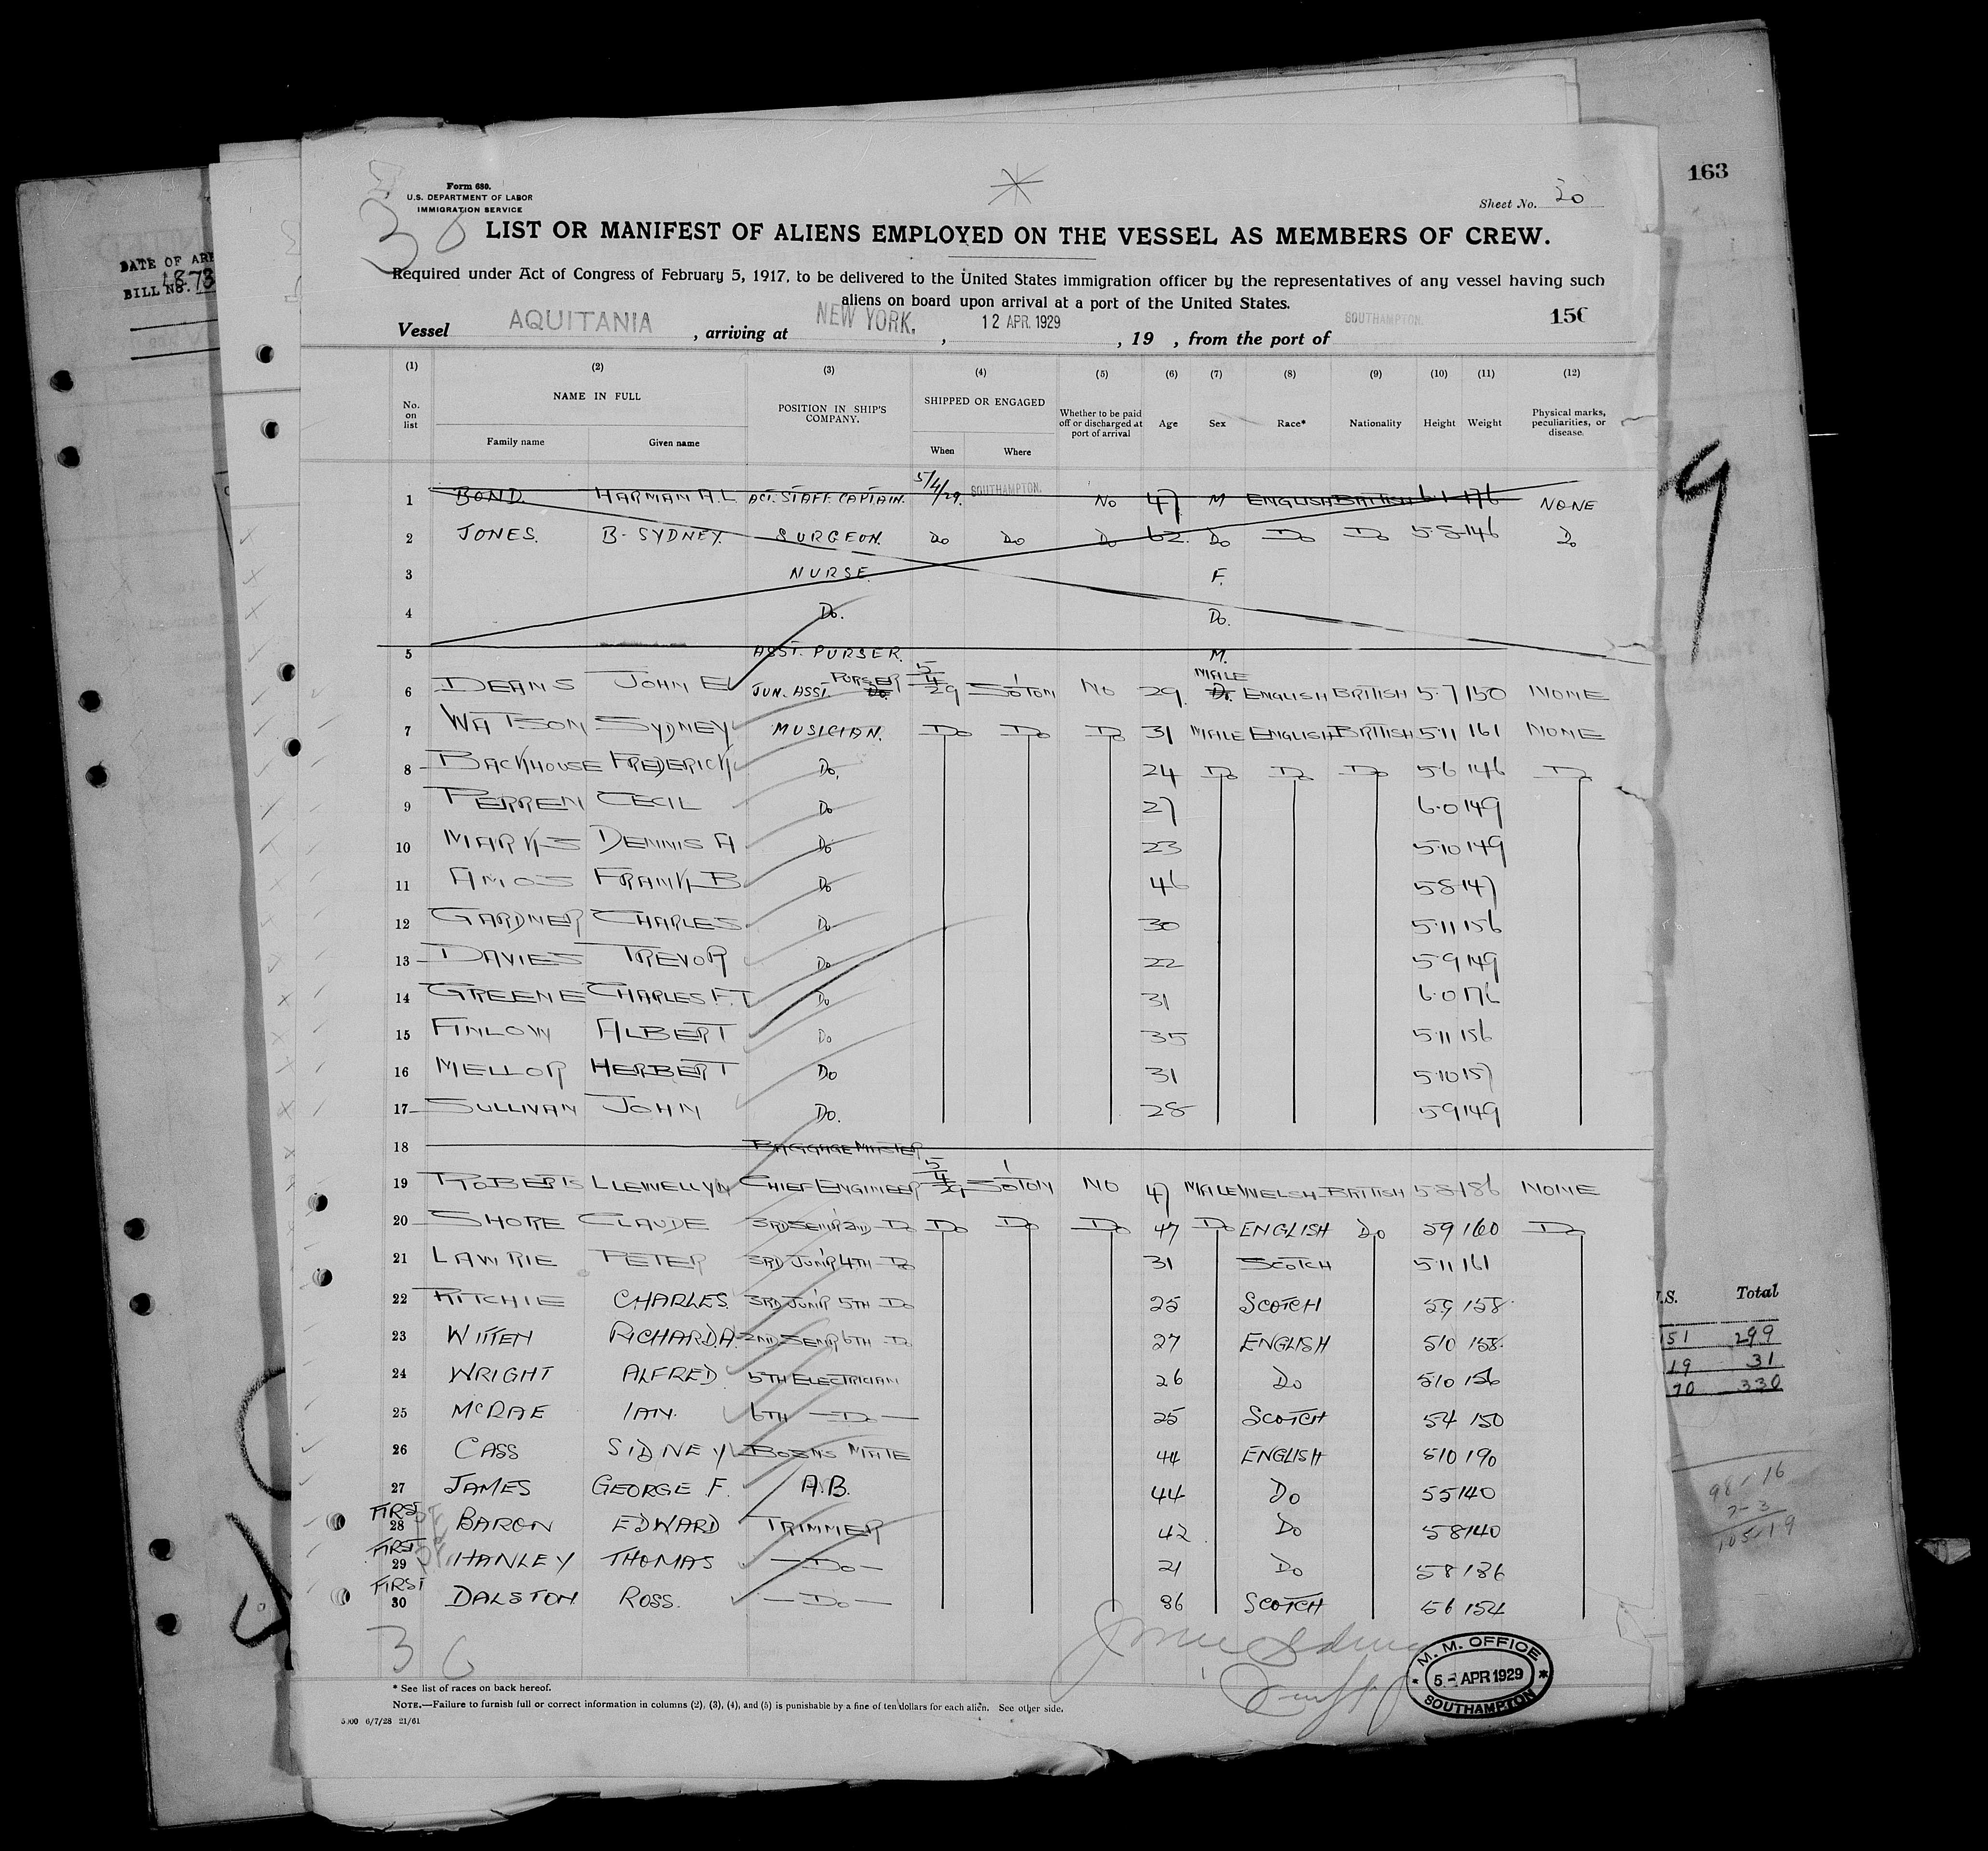 163
DATE OF ARR
1873
BILL NO.
Form 680.
U.S. DEPARTMENT OF LABOR
IMMIGRATION SERVICE
Sheet No. 20
LIST OR MANIFEST OF ALIENS EMPLOYED ON THE VESSEL AS MEMBERS OF CREW.
Required under Act of Congress of February 5, 1917, to be delivered to the United States immigration officer by the representatives of any vessel having such
aliens on board upon arrival at a port of the United States.
156
Vessel AQUITANIA, arriving at NEW YORK, 12 APR. 1929, 19 , from the port of SOUTHAMPTON.
(1) (2) (3) (4) (5) (6) (7) (8) (9) (10) (11) (12)
No. on list NAME IN FULL POSITION IN SHIP'S COMPANY. SHIPPED OR ENGAGED Whether to be paid off or discharged at port of arrival Age Sex Race* Nationality Height Weight Physical marks, peculiarities, or disease.
Family name Given name When Where
1 BOND. HARMAN A.L ACT. STAFF CAPTAIN. 5/4/29. SOUTHAMPTON. NO 47 M ENGLISH BRITISH 6.1 176 NONE
2 JONES. B. SYDNEY. SURGEON. Do Do Do 62. Do Do Do 5.8 146 Do
3 NURSE. F.
4 Do. Do.
5 ASST. PURSER. M.
6 DEANS JOHN E JUN. ASST. PURSER Do 5/4/29 SO'TON NO 29. MALE Do. ENGLISH BRITISH 5.7 150 NONE
7 WATSON SYDNEY MUSICIAN. Do Do Do 31 MALE ENGLISH BRITISH 5.11 161 NONE
8 BACKHOUSE FREDERICK Do. 24 Do Do Do 5.6 146 Do
9 PERREN CECIL Do 27 6.0 149
10 MARKS DENNIS A Do 23 5.10 149
11 AMOS FRANK B Do 46 5.8 147
12 GARDNER CHARLES Do 30 5.11 156
13 DAVIES TREVOR Do 22 5.9 149
14 GREENE CHARLES F.T Do 31 6.0 176
15 FINLOW ALBERT Do 35 5.11 156
16 MELLOR HERBERT Do 31 5.10 157
17 SULLIVAN JOHN Do. 28 5.9 149
18 BAGGAGE MASTER
19 ROBERTS LLEWELLYN CHIEF ENGINEER 5/4/29 SO'TON NO 47 MALE WELSH BRITISH 5.8 186 NONE
20 SHORE CLAUDE 3RD SEN'R 2ND Do Do Do Do 47 Do ENGLISH Do 5 9 160 Do
21 LAWRIE PETER 3RD JUN'R 4TH Do 31 SCOTCH 5.11 161
22 RITCHIE CHARLES. 3RD JUN'R 5TH Do 25 SCOTCH 5 9 158
23 WITTEN RICHARD.A. 2ND SEN'R 6TH Do 27 ENGLISH 5 10 158
24 WRIGHT ALFRED. 5TH ELECTRICIAN 26 Do 5 10 156
25 McRAE IAN. 6TH Do 25 SCOTCH 5 4 150
26 CASS SIDNEY BOSNS MATE 44 ENGLISH 5 10 190
27 JAMES GEORGE F. A.B. 44 Do 5 5 140
FIRST 28 BARON EDWARD TRIMMER 42 Do 5 8 140
FIRST 29 HANLEY THOMAS Do 21 Do 5 8 136
FIRST 30 DALSTON ROSS. Do 36 SCOTCH 5 6 154
36
M. M. OFFICE
5 - APR 1929
SOUTHAMPTON
* See list of races on back hereof.
NOTE.—Failure to furnish full or correct information in columns (2), (3), (4), and (5) is punishable by a fine of ten dollars for each alien. See other side.
5000 6/7/28 21/61
.S. Total
151 299
19 31
70 330
98-16
7-3
105-19